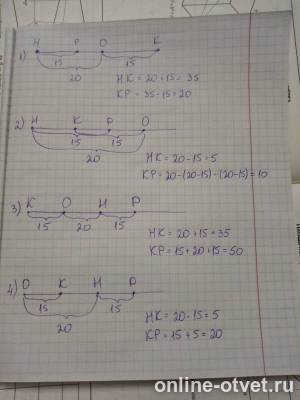 Н Р О К
1) 15 15
20
НК = 20+15 = 35
КР = 35-15=20
2) Н К Р О
15 15
20
НК = 20-15=5
КР=20-(20-15)-(20-15)=10
3) К О Н Р
15 20 15
НК = 20+15=35
КР=15+20+15=50
4) О К Н Р
15 15
20
НК=20-15=5
КР=15+5=20
online-otvet.ru